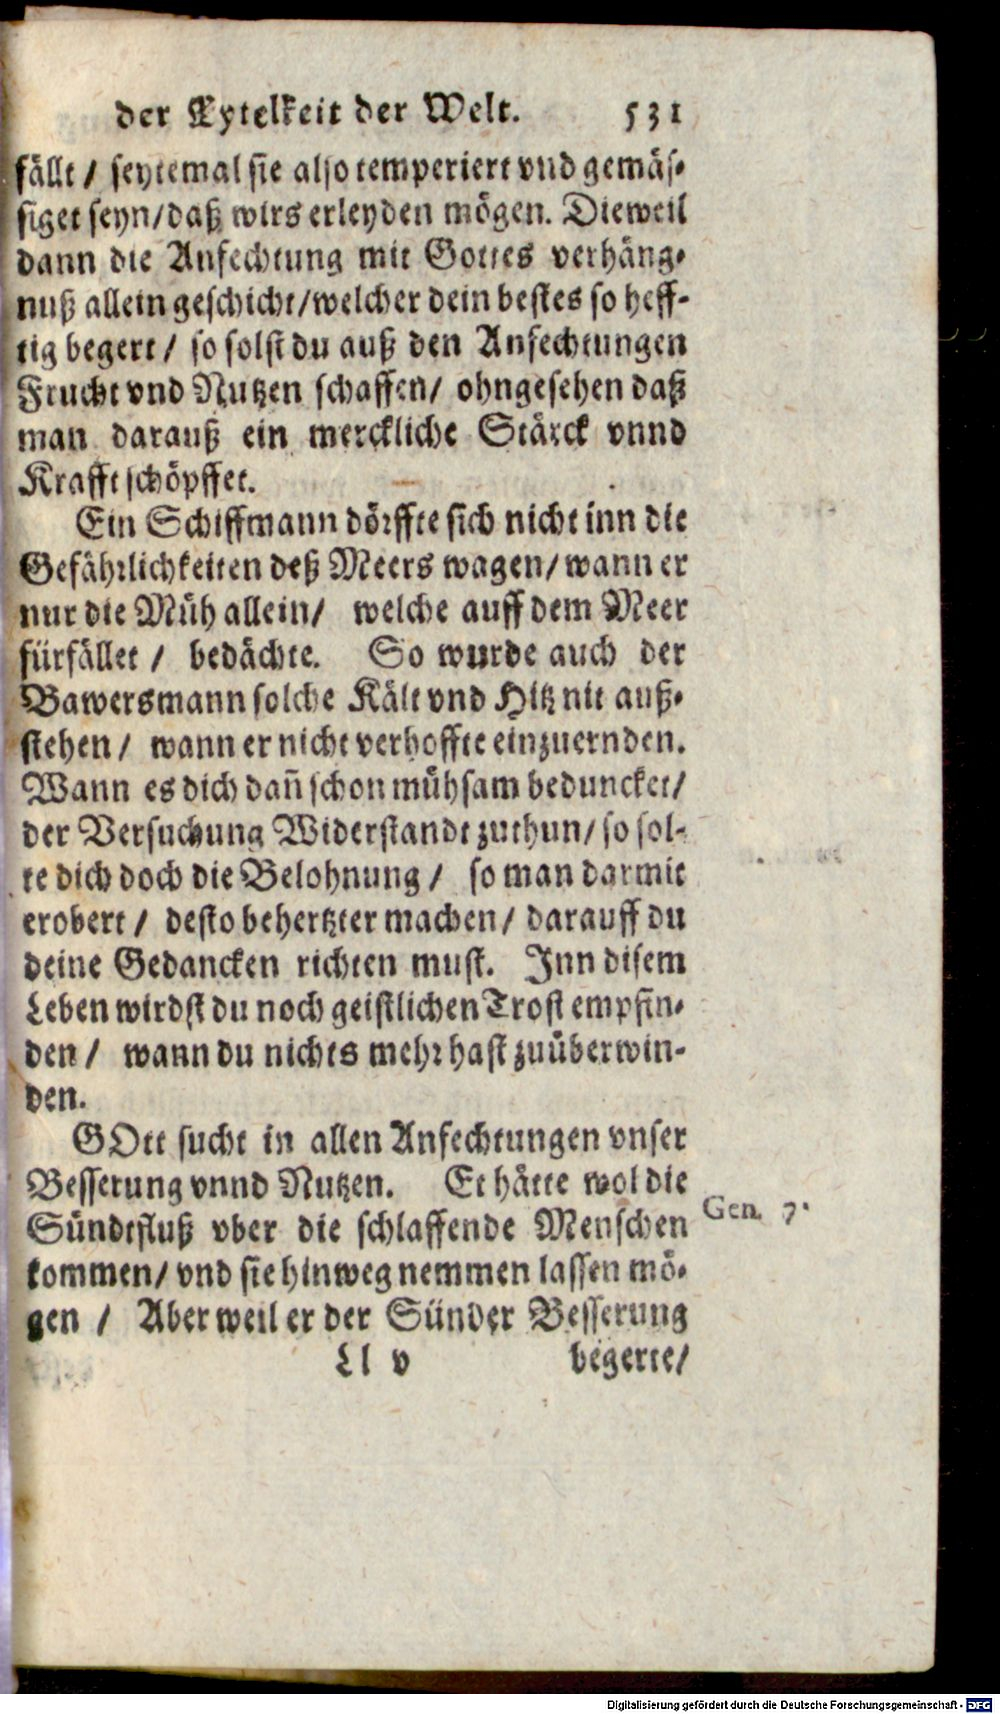 der Eytelkeit der Welt. 531
fällt / seytemal sie also temperiert vnd gemäs-
siget seyn/daß wirs erleyden mögen. Dieweil
dann die Anfechtung mit Gottes verhäng-
nuß allein geschicht/welcher dein bestes so heff-
tig begert / so solst du auß den Anfechtungen
Frucht vnd Nutzen schaffen/ ohngesehen daß
man darauß ein merckliche Stärck vnnd
Krafft schöpffet.
Ein Schiffmann dörffte sich nicht inn die
Gefährlichkeiten deß Meers wagen/wann er
nur die Müh allein/ welche auff dem Meer
fürfället / bedächte. So wurde auch der
Bawersmann solche Kält vnd Hitz nit auß-
stehen / wann er nicht verhoffte einzuernden.
Wann es dich dañ schon mühsam beduncket/
der Versuchung Widerstandt zuthun/so sol-
te dich doch die Belohnung / so man darmit
erobert / desto behertzter machen/ darauff du
deine Gedancken richten must. Inn disem
Leben wirdst du noch geistlichen Trost empfin-
den / wann du nichts mehr hast zuüberwin-
den.
GOtt sucht in allen Anfechtungen vnser
Besserung vnnd Nutzen. Er hätte wol die
Sündtfluß vber die schlaffende Menschen
kommen/ vnd sie hinweg nemmen lassen mö-
gen / Aber weil er der Sünder Besserung
Gen. 7.
Ll v begerte/
Digitalisierung gefördert durch die Deutsche Forschungsgemeinschaft - DFG